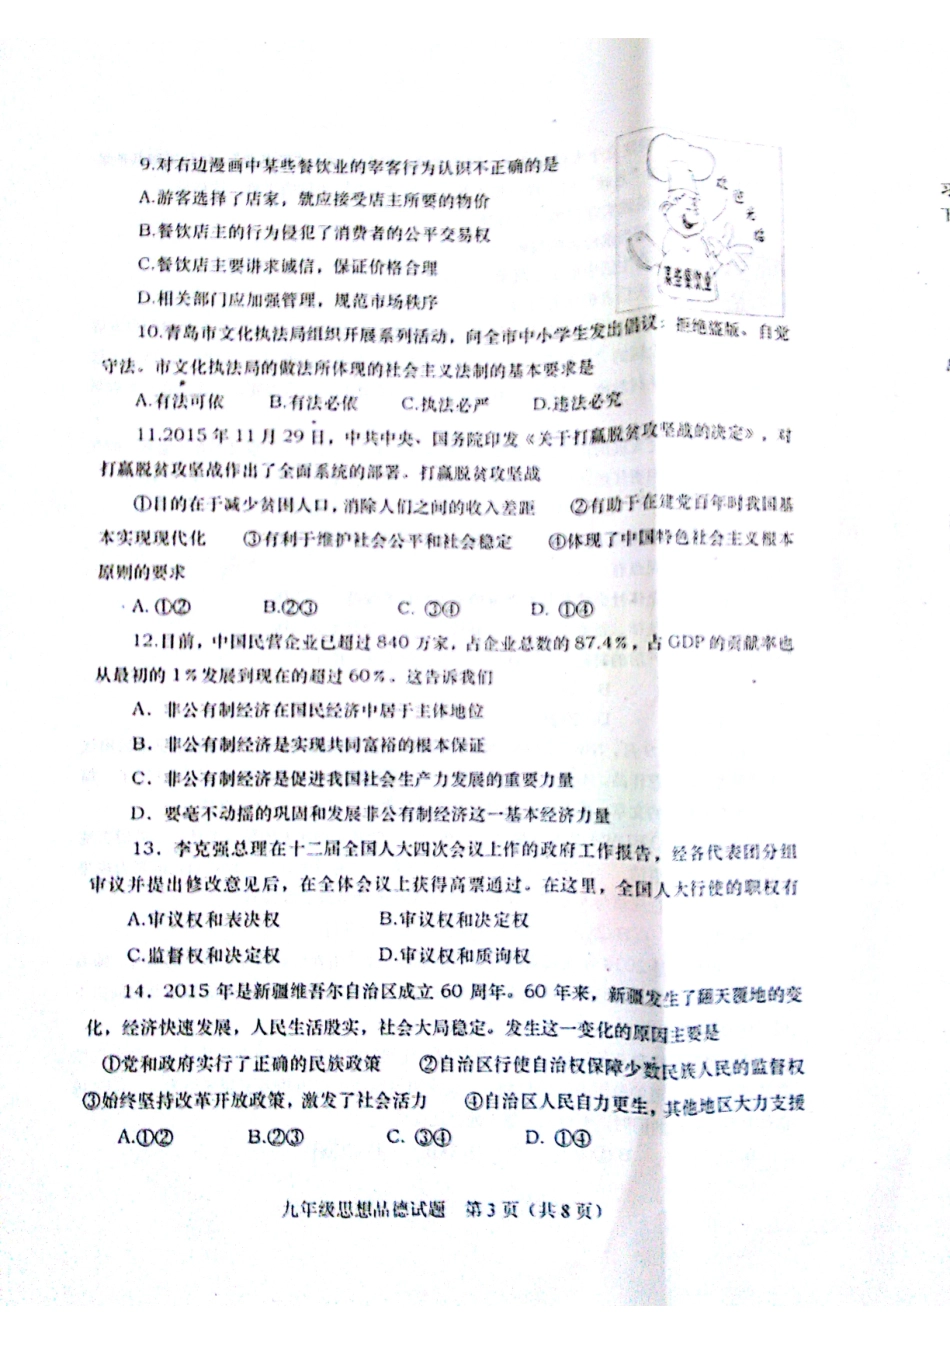 9.对右边漫画中某些餐饮业的宰客行为认识不正确的是
A.游客选择了店家，就应接受店主所要的物价
B.餐饮店主的行为侵犯了消费者的公平交易权
C.餐饮店主要讲求诚信，保证价格合理
D.相关部门应加强管理，规范市场秩序
欢迎光临
某些餐饮业
10.青岛市文化执法局组织开展系列活动，向全市中小学生发出倡议：拒绝盗版、自觉
守法。市文化执法局的做法所体现的社会主义法制的基本要求是
A.有法可依 B.有法必依 C.执法必严 D.违法必究
11.2015 年 11 月 29 日，中共中央、国务院印发《关于打赢脱贫攻坚战的决定》，对
打赢脱贫攻坚战作出了全面系统的部署。打赢脱贫攻坚战
①目的在于减少贫困人口，消除人们之间的收入差距 ②有助于在建党百年时我国基
本实现现代化 ③有利于维护社会公平和社会稳定 ④体现了中国特色社会主义根本
原则的要求
A. ①② B.②③ C. ③④ D. ①④
12.目前，中国民营企业已超过 840 万家，占企业总数的 87.4%，占 GDP 的贡献率也
从最初的 1%发展到现在的超过 60%。这告诉我们
A．非公有制经济在国民经济中居于主体地位
B．非公有制经济是实现共同富裕的根本保证
C．非公有制经济是促进我国社会生产力发展的重要力量
D．要毫不动摇的巩固和发展非公有制经济这一基本经济力量
13．李克强总理在十二届全国人大四次会议上作的政府工作报告，经各代表团分组
审议并提出修改意见后，在全体会议上获得高票通过。在这里，全国人大行使的职权有
A.审议权和表决权 B.审议权和决定权
C.监督权和决定权 D.审议权和质询权
14．2015 年是新疆维吾尔自治区成立 60 周年。60 年来，新疆发生了翻天覆地的变
化，经济快速发展，人民生活殷实，社会大局稳定。发生这一变化的原因主要是
①党和政府实行了正确的民族政策 ②自治区行使自治权保障少数民族人民的监督权
③始终坚持改革开放政策，激发了社会活力 ④自治区人民自力更生，其他地区大力支援
A.①② B.②③ C. ③④ D. ①④
九年级思想品德试题 第 3 页（共 8 页）